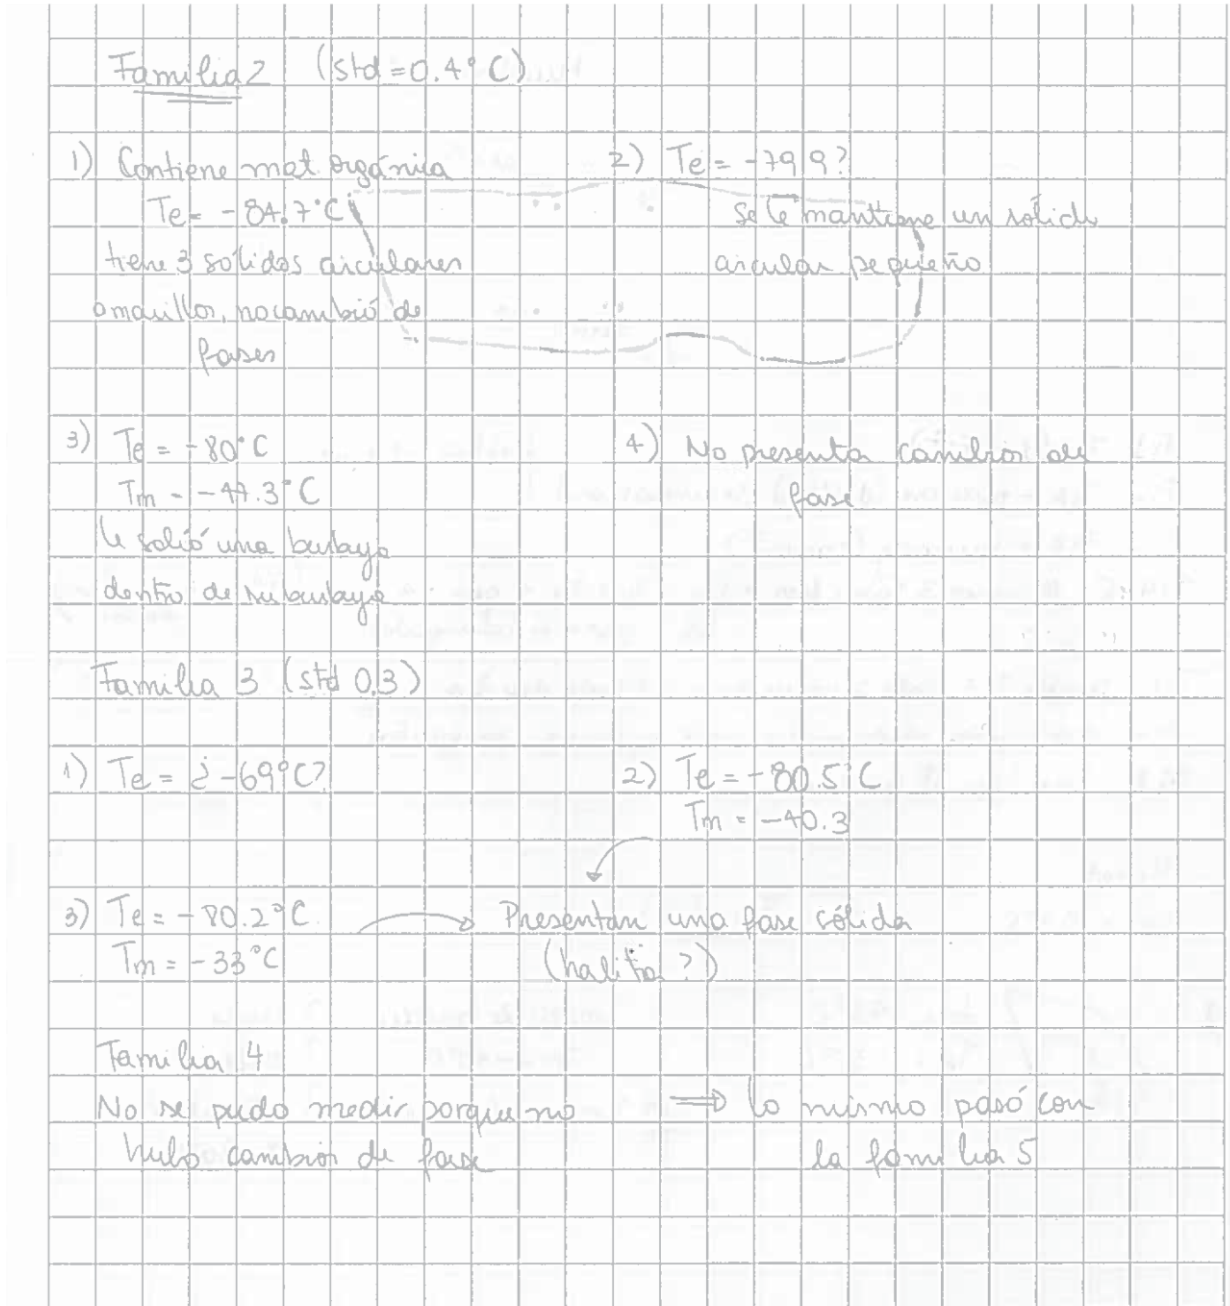 Familia 2 (std = 0.4°C)
1) Contiene mat orgánica
Te = -84.7°C
tiene 3 sólidos circulares
amarillos, no cambió de
fases
2) Te = -79.9?
se le mantiene un sólido
circular pequeño
3) Te = -80°C
Tm = -47.3°C
le salió una burbuja
dentro de su burbuja
4) No presenta cambios de
fase
Familia 3 (std 0.3)
1) Te = ¿-69°C?
2) Te = -80.5°C
Tm = -40.3
3) Te = -80.2°C
Tm = -33°C
Presentan una fase sólida
(halita?)
Familia 4
No se pudo medir porque no
hubo cambios de fase
⇒ lo mismo pasó con
la familia 5